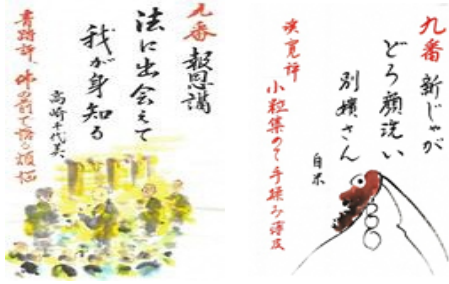 九番 報恩講
法に出会えて
我が身知る
高崎千代美
評 仏の前で悟る煩悩
九番 新じゃが
どろ顔洗い
別嬪さん
自米
評 小粒集めて手揉み薄皮